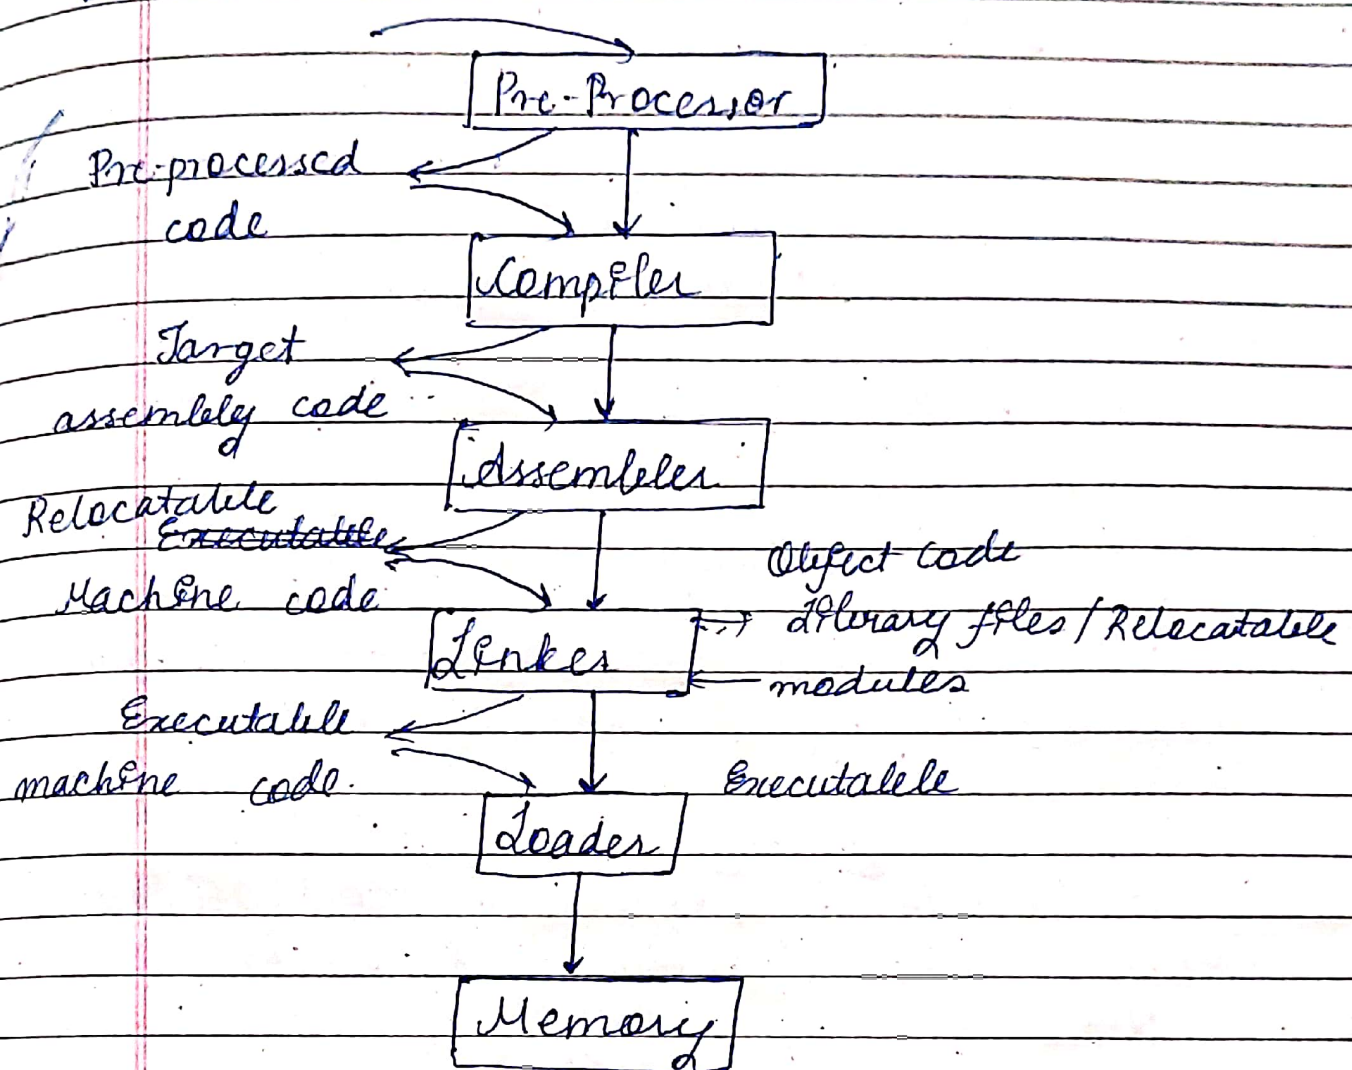 Pre-Processor
Pre-processed
code
Compiler
Target
assembly code
Assembler
Relocatable
Executable
Machine code
Object code
Library files / Relocatable
Linker
modules
Executable
machine code.
Executable
Loader
Memory